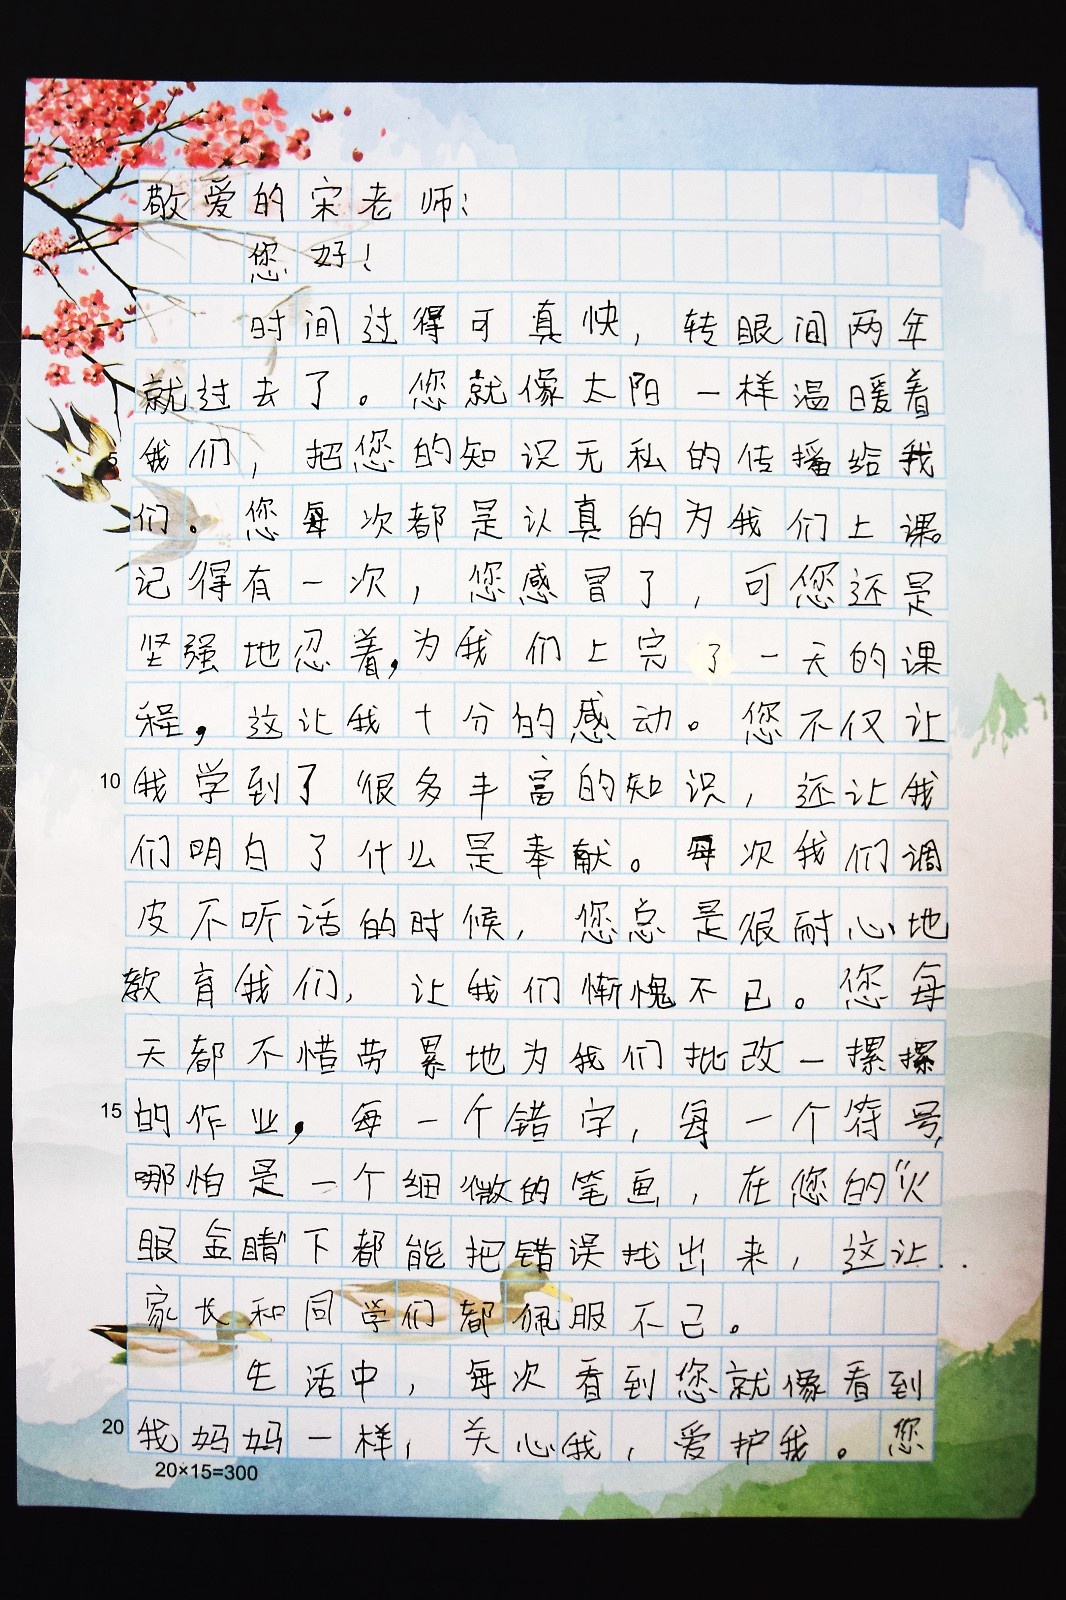 敬爱的宋老师:
您好!
时间过得可真快,转眼间两年
就过去了。您就像太阳一样温暖着
5
我们,把您的知识无私的传播给我
们。您每次都是认真的为我们上课。
记得有一次,您感冒了,可您还是
坚强地忍着,为我们上完了一天的课
程,这让我十分的感动。您不仅让
10
我学到了很多丰富的知识,还让我
们明白了什么是奉献。每次我们调
皮不听话的时候,您总是很耐心地
教育我们,让我们惭愧不已。您每
天都不惜劳累地为我们批改一摞摞
15
的作业,每一个错字,每一个符号,
哪怕是一个细微的笔画,在您的“火
眼金睛”下都能把错误找出来,这让..
家长和同学们都佩服不已。
生活中,每次看到您就像看到
20
我妈妈一样,关心我,爱护我。您
20×15=300